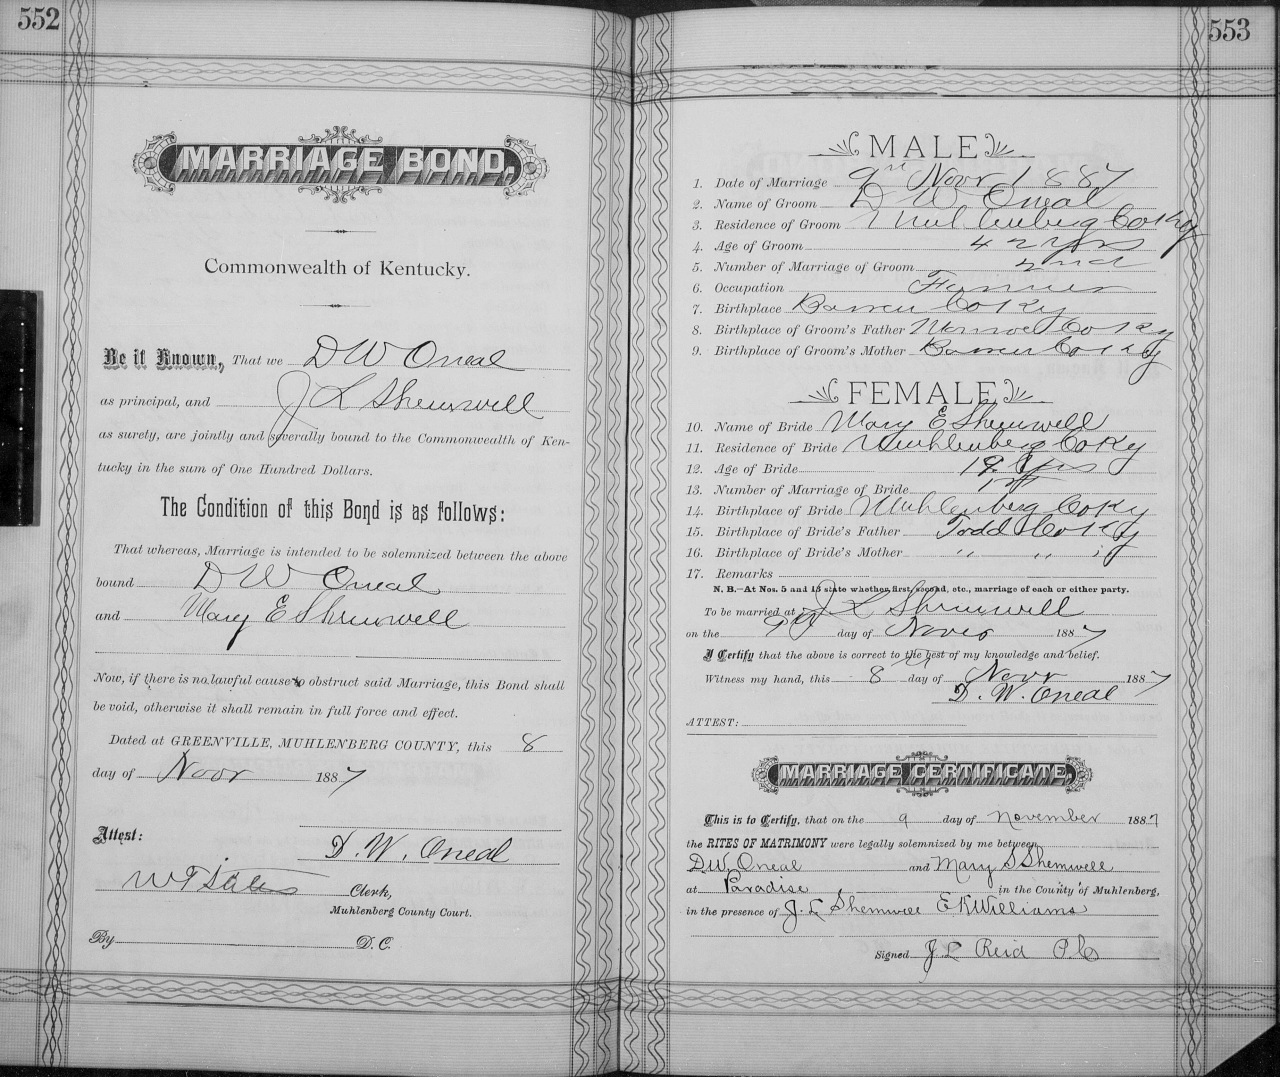 552
MARRIAGE BOND.
Commonwealth of Kentucky.
Be it Known, That we D W Oneal
as principal, and J L Shemwell
as surety, are jointly and severally bound to the Commonwealth of Ken-
tucky in the sum of One Hundred Dollars.
The Condition of this Bond is as follows:
That whereas, Marriage is intended to be solemnized between the above
bound D W Oneal
and Mary E Shemwell
Now, if there is no lawful cause to obstruct said Marriage, this Bond shall
be void, otherwise it shall remain in full force and effect.
Dated at GREENVILLE, MUHLENBERG COUNTY, this 8
day of Novr 1887
Attest:
D. W. Oneal
Clerk,
Muhlenberg County Court.
By D. C.
553
MALE
1. Date of Marriage 9th Novr 1887
2. Name of Groom D W Oneal
3. Residence of Groom Muhlenberg Co Ky
4. Age of Groom 42 yrs
5. Number of Marriage of Groom 2nd
6. Occupation Farmer
7. Birthplace Barren Co Ky
8. Birthplace of Groom's Father Monroe Co Ky
9. Birthplace of Groom's Mother Barren Co Ky
FEMALE
10. Name of Bride Mary E Shemwell
11. Residence of Bride Muhlenberg Co Ky
12. Age of Bride 19 yrs
13. Number of Marriage of Bride 1st
14. Birthplace of Bride Muhlenberg Co Ky
15. Birthplace of Bride's Father Todd Co Ky
16. Birthplace of Bride's Mother " " "
17. Remarks
N. B.—At Nos. 5 and 13 state whether first, second, etc., marriage of each or either party.
To be married at J L Shemwell
on the 9 day of Novr 1887
I Certify that the above is correct to the best of my knowledge and belief.
Witness my hand, this 8 day of Novr 1887
D. W. Oneal
ATTEST:
MARRIAGE CERTIFICATE.
This is to Certify, that on the 9 day of November 1887
the RITES OF MATRIMONY were legally solemnized by me between
D W Oneal and Mary S Shemwell
at Paradise in the County of Muhlenberg,
in the presence of J. L Shemwell E K Williams
Signed J L Reid P. C